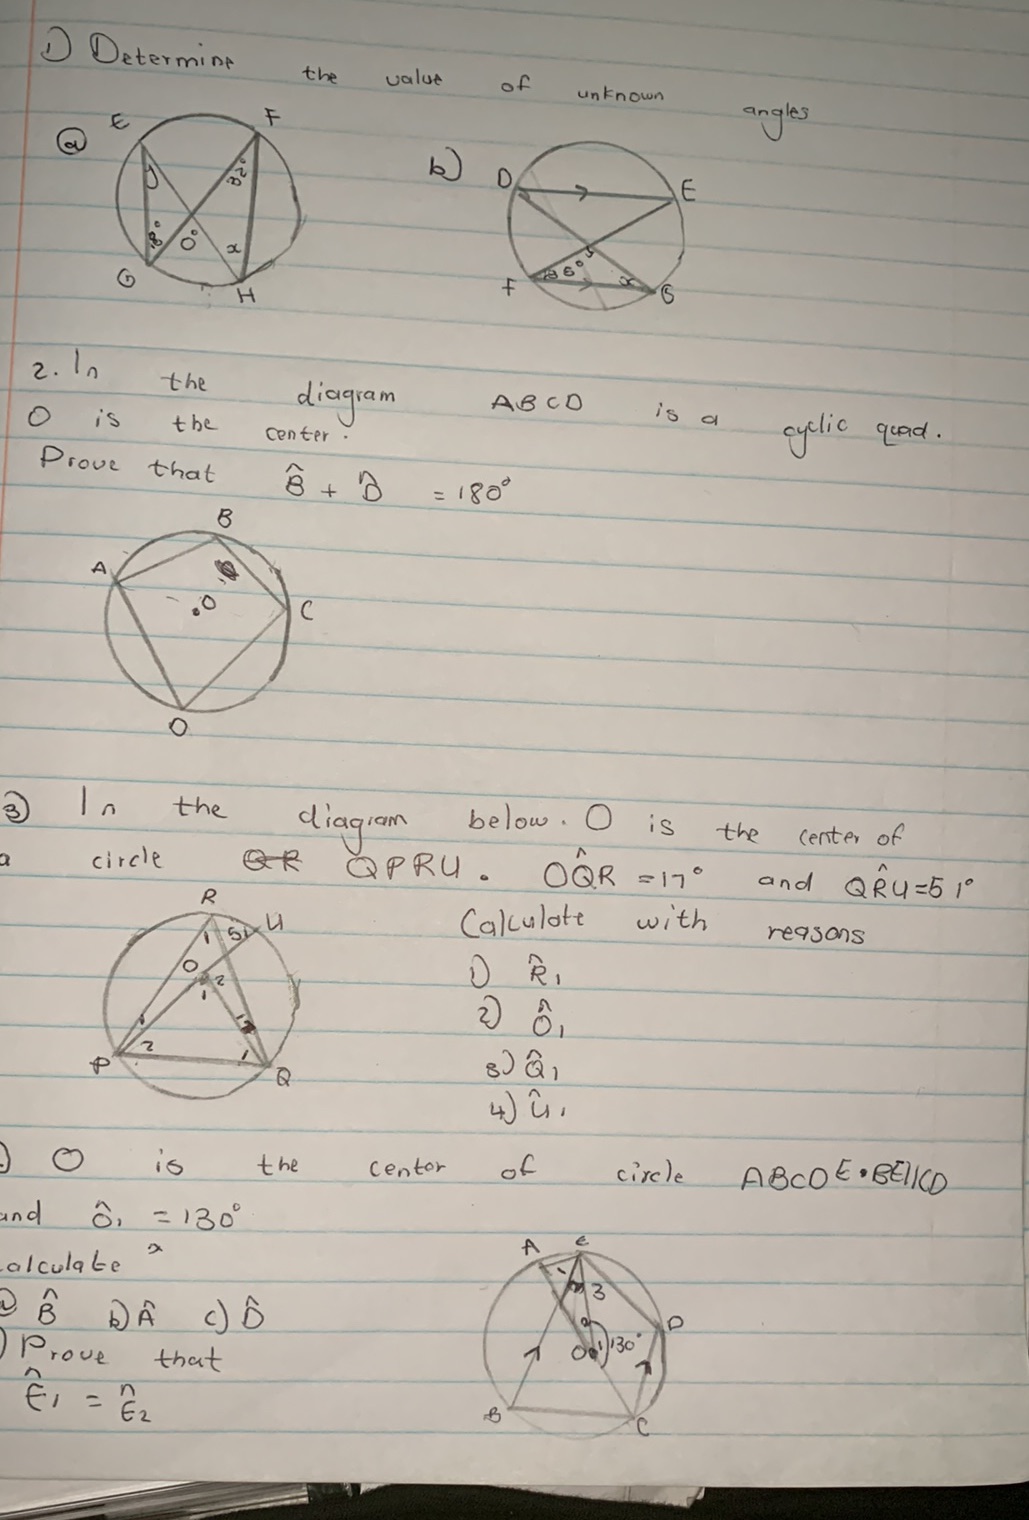 1) Determine the value of unknown angles
a
E
F
y
32°
8°
O°
x
G
H
b)
D
E
36°
x
F
G
2. In the diagram ABCD is a cyclic quad.
O is the center.
Prove that B̂ + D̂ = 180°
B
A
.O
C
O
3) In the diagram below. O is the center of
a circle QPRU. OQ̂R = 17° and QR̂U = 51°
R
U
1
51
O
2
1
1
17
2
1
P
Q
Calculate with reasons
1) R̂1
2) Ô1
3) Q̂1
4) Û1
) O is the center of circle ABCDE. BE||CD
and Ô1 = 130°
calculate
a) B̂ b) Â c) D̂
) Prove that
Ê1 = Ê2
A
E
1
3
2
D
O
1
130°
B
C